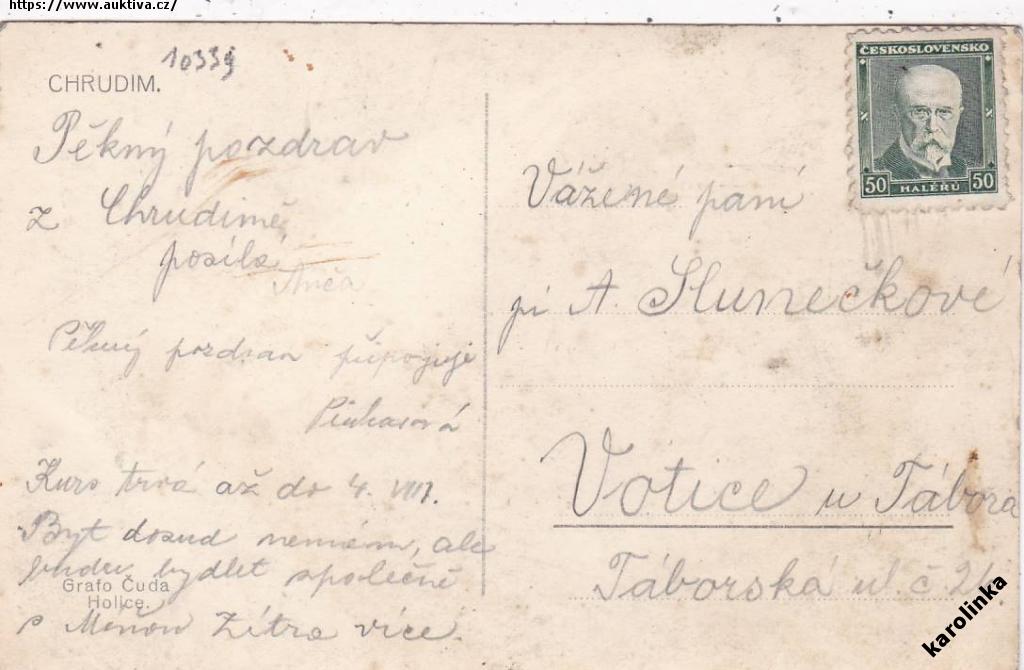 https://www.auktiva.cz/
10339
CHRUDIM.
Pěkný pozdrav
z Chrudimě
posílá
Anča
Pěkný pozdrav připojuje
Kurs trvá až do 4. VIII.
Byt dosud nemám, ale
budu bydlet společně
s Zítra více.
Grafo Čuda
Holice.
ČESKOSLOVENSKO
50 HALÉŘŮ 50
Vážené paní
pí A. Slunečkové
Votice u Tábora
Táborská ul. č.
karolinka